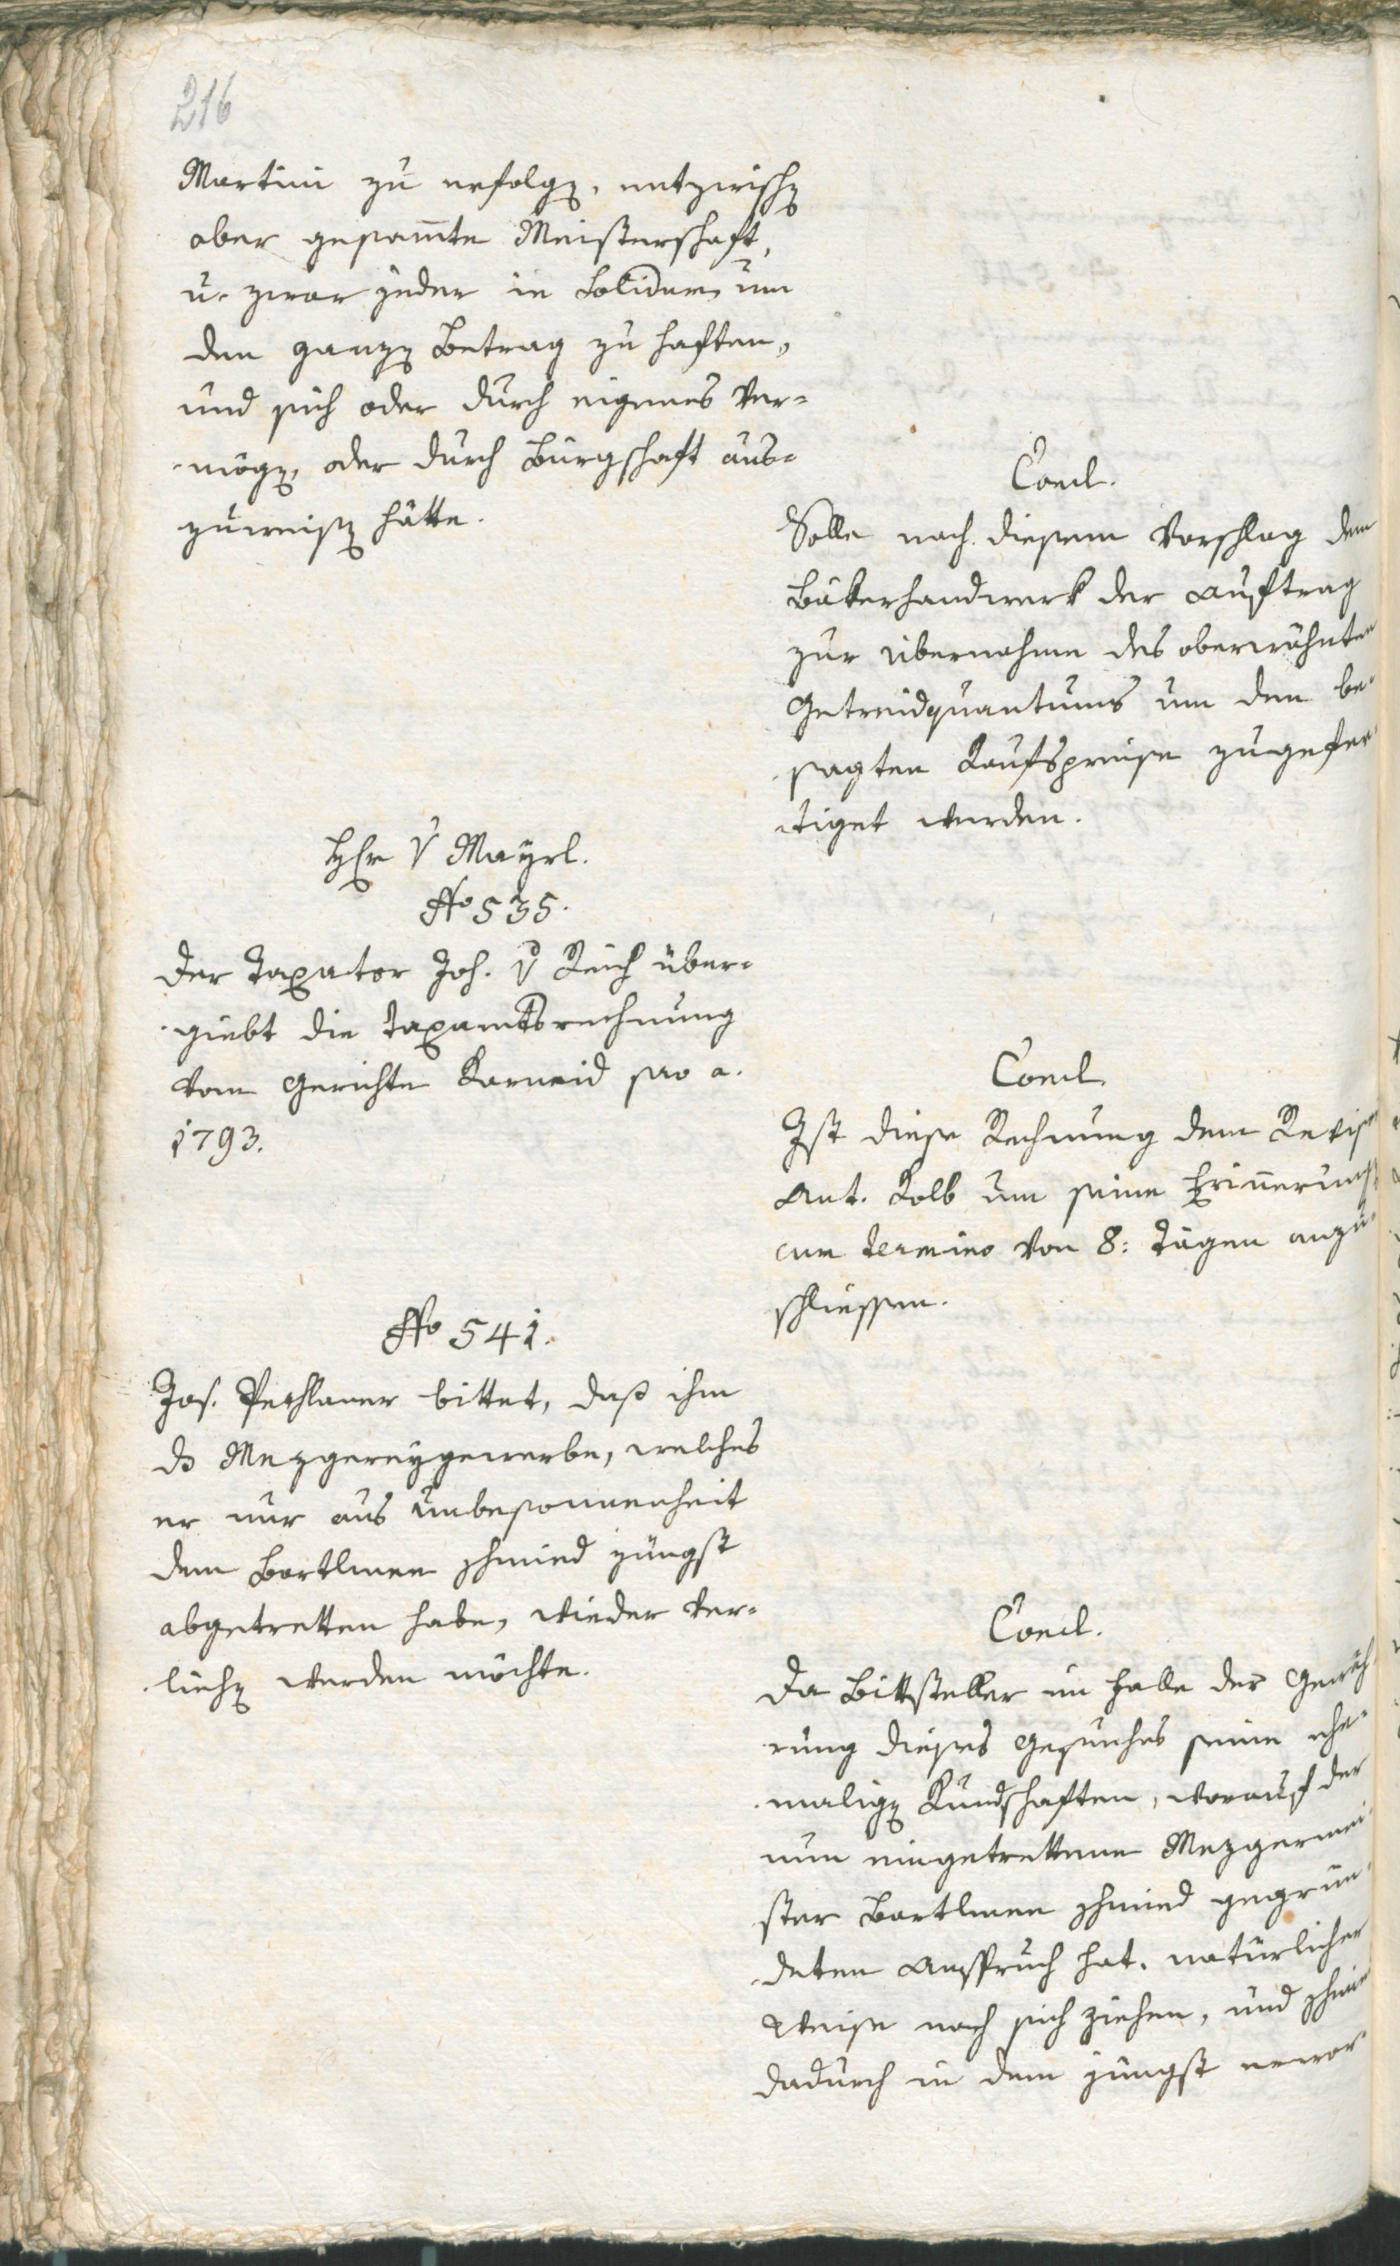 216
Martini zu erfolgen, entzwischen
aber gesam̄te Meisterschaft,
u. zwar jeder in Solidum um
den ganzen Betrag zu haften,
und sich oder durch eigenes Ver-
mögen, oder durch Bürgschaft aus-
zuweisen hätte.
Concl.
Solle nach diesem Vorschlag dem
Bäkerhandwerk der Auftrag
zur Übernahme des oberwähnten
Getreidquantums um den be-
sagten Kaufspreise zugefer-
tiget werden.
Hr v Mayrl.
No 535.
Der Taxator Joh. v Reich über-
giebt die Taxamtsrechnung
vom Gerichte Karneid pro a.
1793.
Concl.
Ist diese Rechnung dem Revisor
Ant. Kolb um seine Erin̄erung
cum termino von 8: Tägen anzu-
schliessen.
No 541.
Jos. Pechlaner bittet, daß ihm
ds Mezgereygewerbe, welches
er nur aus Unbesonnenheit
dem Bartlmee Schmied jüngst
abgetretten habe, wieder ver-
liehen werden möchte.
Concl.
Da Bittsteller im Falle der Gewäh-
rung dieses Gesuches seine ehe-
maligen Kundschaften, worauf der
nun eingetrettene Mezgermei-
ster Bartlmee Schmied gegrün-
deten Anspruch hat, natürlicher
Weise nach sich ziehen, und Schmied
dadurch in dem jüngst erwor-